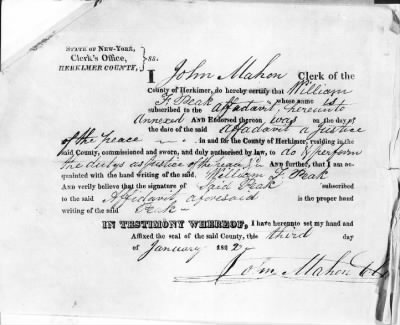 STATE OF NEW-YORK,
Clerk's Office, ss.
HERKIMER COUNTY,
I John Mahon Clerk of the
County of Herkimer, do hereby certify that William
F. Peak whose name is
subscribed to the affadavit, hereunto
Annexed AND Endorsed thereon was on the day of
the date of the said affadavit a Justice
of the peace in the County of Herkimer, residing in the
said County, commissioned and sworn, and duly authorised by law, to do & perform
the dutys as Justice of the peace &c AND further, that I am ac-
quainted with the hand writing of the said William F. Peak
AND verily believe that the signature of Said Peak subscribed
to the said Affidavit aforesaid is the proper hand
writing of the said Peak
IN TESTIMONY WHEREOF, I have hereunto set my hand and
Affixed the seal of the said County, this third day
of January 182
John Mahon Clk